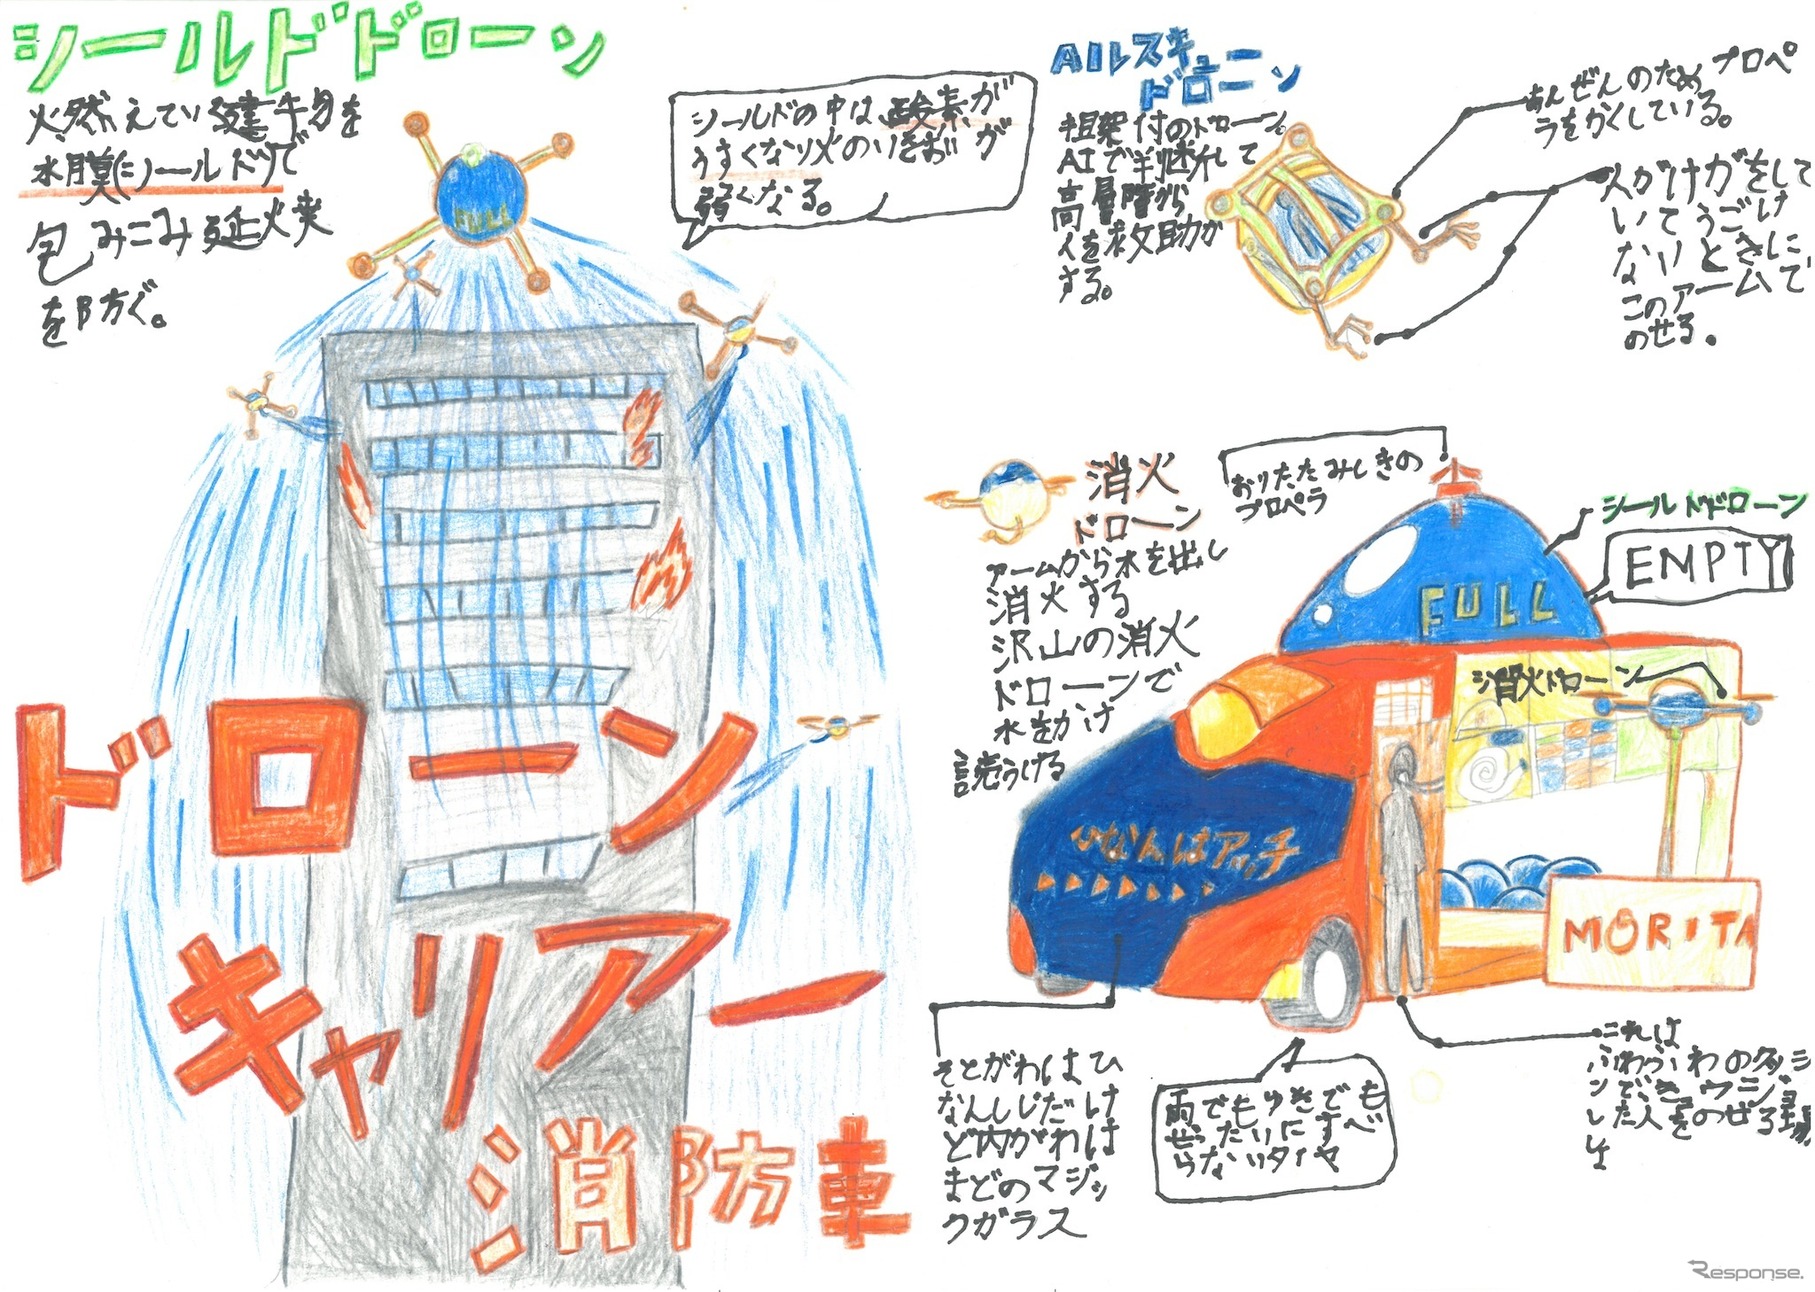 シールドドローン
火然えている建物を
水膜(シールド)で
包みこみ延火焼
を防ぐ。
シールドの中は酸素が
うすくなり火のいきおいが
弱くなる。
FULL
AIレスキュー
ドローン
担架付のドローン。
AIで判断して
高層階から
人を救助が
する。
あんぜんのためプロペ
ラをかくしている。
人がけがをして
いてうごけ
ないときに
このアームで
のせる。
消火
ドローン
アームから水を出し
消火する
沢山の消火
ドローンで
水をかけ
続うける
おりたたみしきの
プロペラ
シールドドローン
EMPTY
FULL
消火ドローン
ひなんはアッチ
MORITA
ドローン
キャリアー
消防車
そとがわはひ
なんしじだけ
ど内がわは
まどのマジッ
クガラス
雨でもゆきでも
ぜったいにすべ
らないタイヤ
これは
ふわふわの
した人をのせる場
しょ
Response.